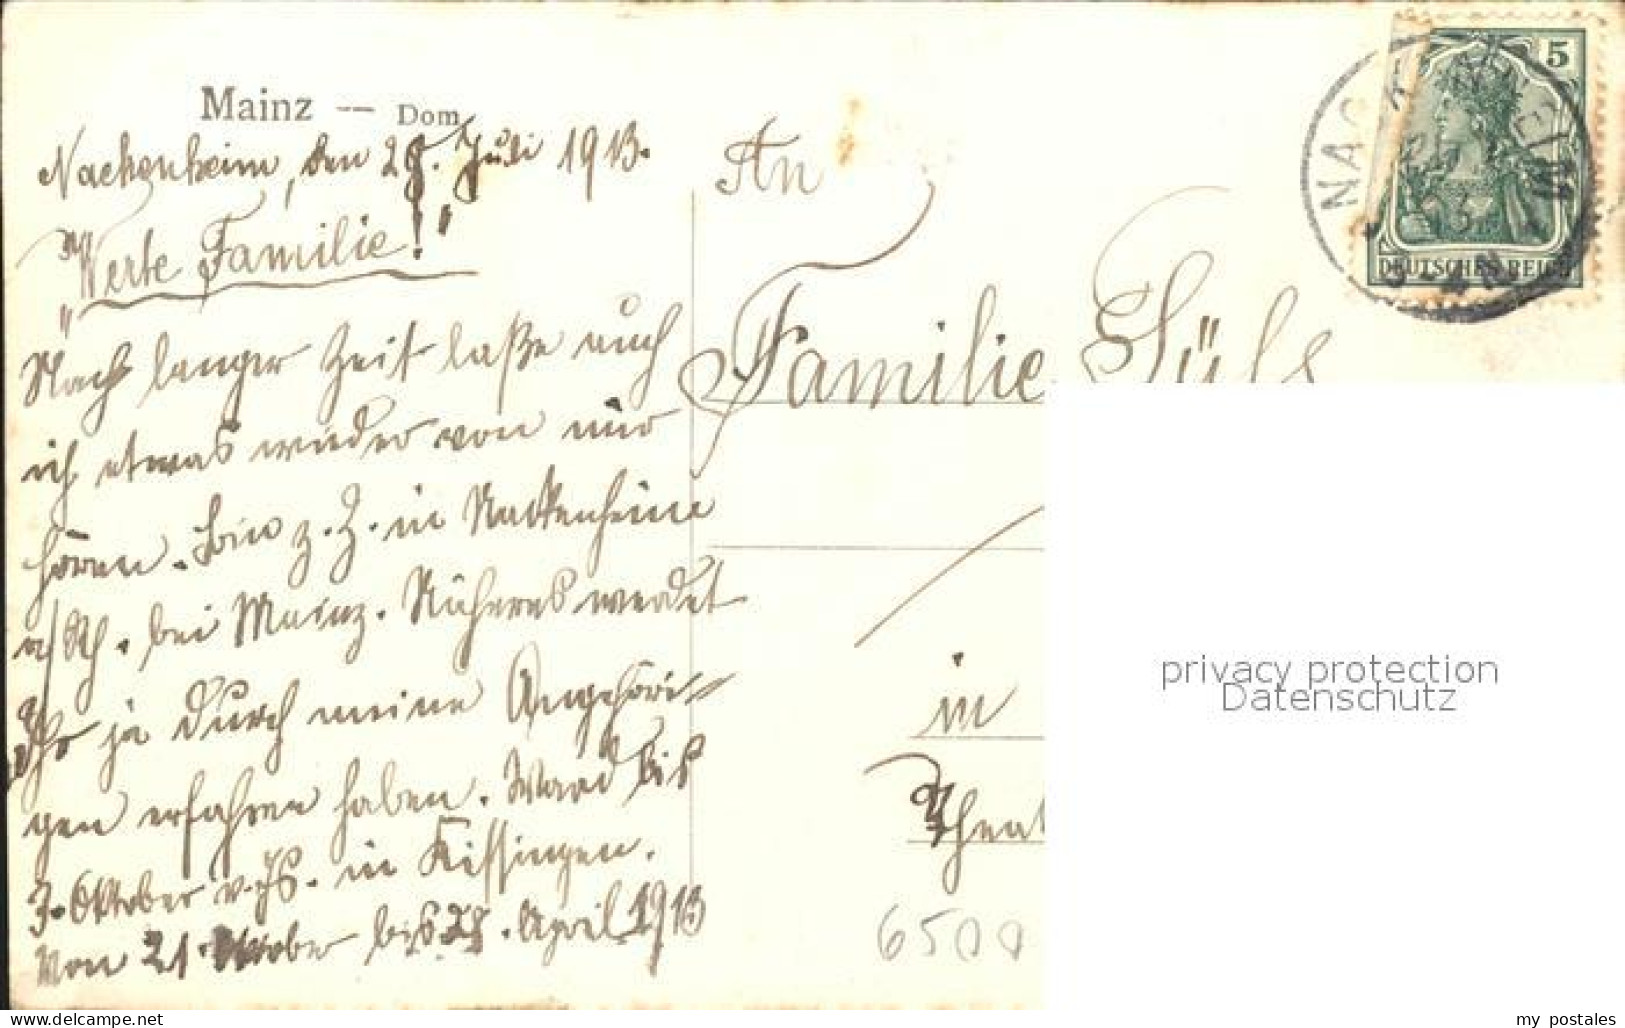 Mainz — Dom
Nackenheim, den 28. Juli 1913.
"Werte Familie!"
Nach langer Zeit laße auch
ich etwas wieder von mir
hören. Bin z. Z. in Nackenheim
a/Rh. bei Mainz. Näheres werdet
Ihr ja durch meine Angehöri-
gen erfahren haben. Ward bis
3. Oktober v. Js. in Kissingen.
Von 21. Oktober bis 28. April 1913
An
Familie Süls
in
Theat
6500
5
DEUTSCHES REICH
privacy protection
Datenschutz
www.delcampe.net
my_postales